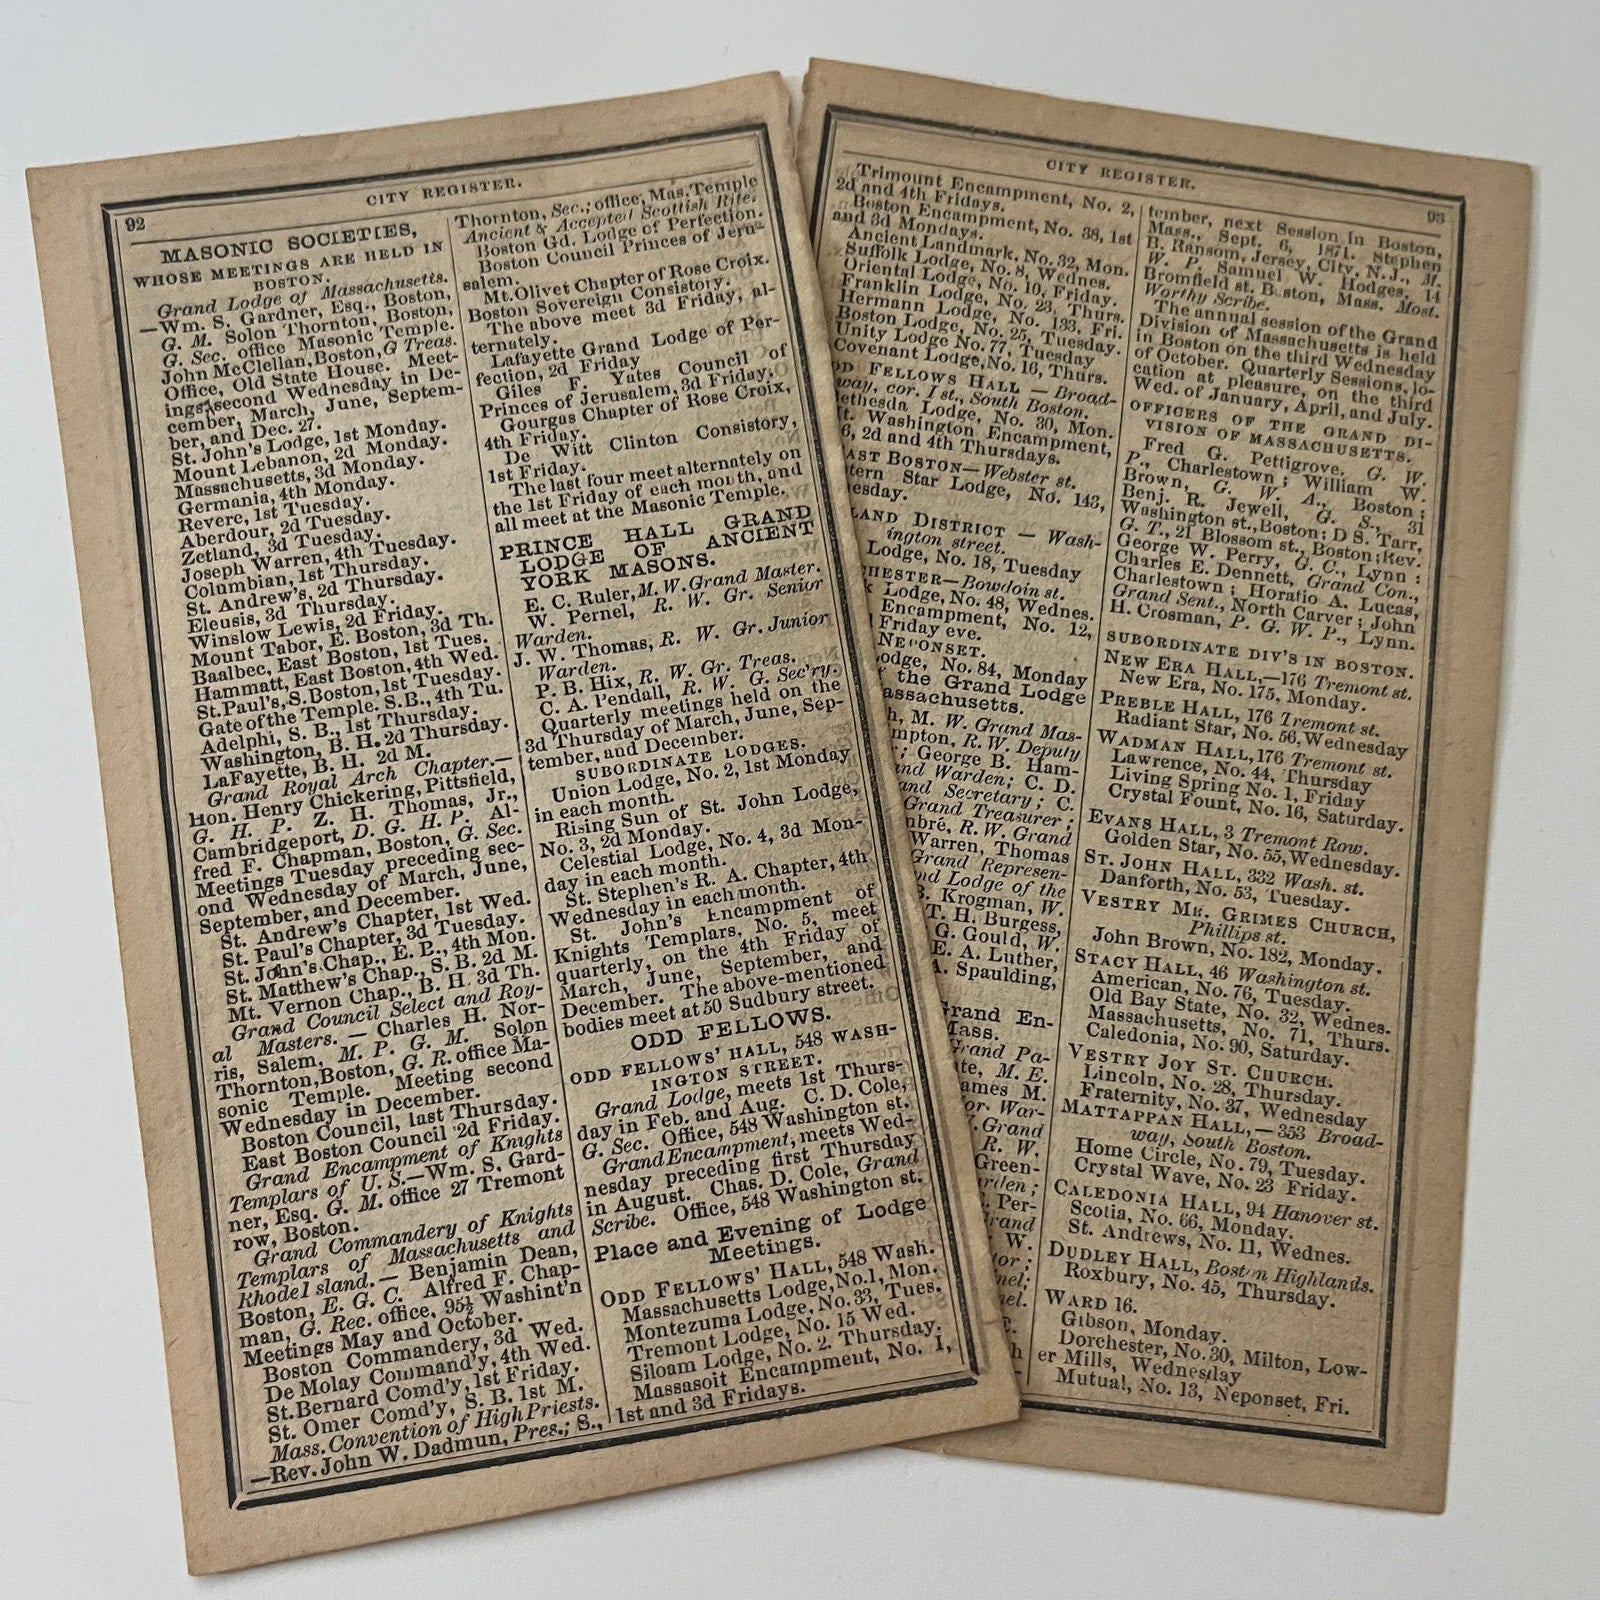 92
CITY REGISTER.
MASONIC SOCIETIES,
WHOSE MEETINGS ARE HELD IN
BOSTON.
Grand Lodge of Massachusetts.
—Wm. S. Gardner, Esq., Boston,
G. M. Solon Thornton, Boston,
G. Sec. office Masonic Temple.
John McClellan, Boston, G Treas.
Office, Old State House. Meet-
ings, second Wednesday in De-
cember, March, June, Septem-
ber, and Dec. 27.
St. John's Lodge, 1st Monday.
Mount Lebanon, 2d Monday.
Massachusetts, 3d Monday.
Germania, 4th Monday.
Revere, 1st Tuesday.
Aberdour, 2d Tuesday.
Zetland, 3d Tuesday.
Joseph Warren, 4th Tuesday.
Columbian, 1st Thursday.
St. Andrew's, 2d Thursday.
Eleusis, 3d Thursday.
Winslow Lewis, 2d Friday.
Mount Tabor, E. Boston, 3d Th.
Baalbec, East Boston, 1st Tues.
Hammatt, East Boston, 4th Wed.
St. Paul's, S. Boston, 1st Tuesday.
Gate of the Temple. S.B., 4th Tu.
Adelphi, S. B., 1st Thursday.
Washington, B. H. 2d Thursday.
LaFayette, B. H. 2d M.
Grand Royal Arch Chapter.—
Hon. Henry Chickering, Pittsfield,
G. H. P. Z. H. Thomas, Jr.,
Cambridgeport, D. G. H. P. Al-
fred F. Chapman, Boston, G. Sec.
Meetings Tuesday preceding sec-
ond Wednesday of March, June,
September, and December.
St. Andrew's Chapter, 1st Wed.
St. Paul's Chapter, 3d Tuesday.
St. John's Chap., E. B., 4th Mon.
St. Matthew's Chap., S. B. 2d M.
Mt. Vernon Chap., B. H. 3d Th.
Grand Council Select and Roy-
al Masters. — Charles H. Nor-
ris, Salem, M. P. G. M. Solon
Thornton, Boston, G. R. office Ma-
sonic Temple. Meeting second
Wednesday in December.
Boston Council, last Thursday.
East Boston Council 2d Friday.
Grand Encampment of Knights
Templars of U. S.—Wm. S. Gard-
ner, Esq. G. M. office 27 Tremont
row, Boston.
Grand Commandery of Knights
Templars of Massachusetts and
Rhode Island.— Benjamin Dean,
Boston, E. G. C. Alfred F. Chap-
man, G. Rec. office, 95½ Washint'n
Meetings May and October.
Boston Commandery, 3d Wed.
De Molay Command'y, 4th Wed.
St. Bernard Comd'y, 1st Friday.
St. Omer Comd'y, S. B. 1st M.
Mass. Convention of High Priests.
—Rev. John W. Dadmun, Pres.; S.,
Thornton, Sec.; office, Mas. Temple
Ancient & Accepted Scottish Rite.
Boston Gd. Lodge of Perfection.
Boston Council Princes of Jeru-
salem.
Mt. Olivet Chapter of Rose Croix.
Boston Sovereign Consistory.
The above meet 3d Friday, al-
ternately.
Lafayette Grand Lodge of Per-
fection, 2d Friday
Giles F. Yates Council of
Princes of Jerusalem, 3d Friday,
Gourgas Chapter of Rose Croix,
4th Friday.
De Witt Clinton Consistory,
1st Friday.
The last four meet alternately on
the 1st Friday of each month, and
all meet at the Masonic Temple.
PRINCE HALL GRAND
LODGE OF ANCIENT
YORK MASONS.
E. C. Ruler, M. W. Grand Master.
W. Pernel, R. W. Gr. Senior
Warden.
J. W. Thomas, R. W. Gr. Junior
Warden.
P. B. Hix, R. W. Gr. Treas.
C. A. Pendall, R. W. G. Sec'ry.
Quarterly meetings held on the
3d Thursday of March, June, Sep-
tember, and December.
SUBORDINATE LODGES.
Union Lodge, No. 2, 1st Monday
in each month.
Rising Sun of St. John Lodge,
No. 3, 2d Monday.
Celestial Lodge, No. 4, 3d Mon-
day in each month.
St. Stephen's R. A. Chapter, 4th
Wednesday in each month.
St. John's Encampment of
Knights Templars, No. 5, meet
quarterly, on the 4th Friday of
March, June, September, and
December. The above-mentioned
bodies meet at 50 Sudbury street.
ODD FELLOWS.
ODD FELLOWS' HALL, 548 WASH-
INGTON STREET.
Grand Lodge, meets 1st Thurs-
day in Feb. and Aug. C. D. Cole,
G. Sec. Office, 548 Washington st.
Grand Encampment, meets Wed-
nesday preceding first Thursday
in August. Chas. D. Cole, Grand
Scribe. Office, 548 Washington st.
Place and Evening of Lodge
Meetings.
ODD FELLOWS' HALL, 548 Wash.
Massachusetts Lodge, No. 1, Mon.
Montezuma Lodge, No. 33, Tues.
Tremont Lodge, No. 15 Wed.
Siloam Lodge, No. 2. Thursday.
Massasoit Encampment, No. 1,
1st and 3d Fridays.
CITY REGISTER.
93
Trimount Encampment, No. 2,
2d and 4th Fridays.
Boston Encampment, No. 38, 1st
and 3d Mondays.
Ancient Landmark, No. 32, Mon.
Suffolk Lodge, No. 8, Wednes.
Oriental Lodge, No. 10, Friday.
Franklin Lodge, No. 23, Thurs.
Hermann Lodge, No. 133, Fri.
Boston Lodge, No. 25, Tuesday.
Unity Lodge No. 77, Tuesday
Covenant Lodge, No. 16, Thurs.
DD FELLOWS HALL — Broad-
way, cor. 1st., South Boston.
ethesda Lodge, No. 30, Mon.
t. Washington Encampment,
6, 2d and 4th Thursdays.
AST BOSTON—Webster st.
tern Star Lodge, No. 143,
esday.
LAND DISTRICT — Wash-
ington street.
Lodge, No. 18, Tuesday
HESTER—Bowdoin st.
Lodge, No. 48, Wednes.
Encampment, No. 12,
Friday eve.
NEPONSET.
odge, No. 84, Monday
f the Grand Lodge
assachusetts.
h, M. W. Grand Mas-
mpton, R. W. Deputy
; George B. Ham-
and Warden; C. D.
and Secretary; C.
Grand Treasurer;
mbré, R. W. Grand
Warren, Thomas
Grand Represen-
nd Lodge of the
B. Krogman, W.
T. H. Burgess,
G. Gould, W.
E. A. Luther,
A. Spaulding,
Grand En-
Mass.
Grand Pa-
te, M. E.
ames M.
or War-
Grand
R. W.
Green-
rden;
Per-
rand
W.
tor;
nel;
nel.
tember, next Session in Boston,
Mass., Sept. 6, 1871. Stephen
B. Ransom, Jersey City, N.J., M.
W. P. Samuel W. Hodges, 14
Bromfield st. Boston, Mass. Most.
Worthy Scribe.
The annual session of the Grand
Division of Massachusetts is held
in Boston on the third Wednesday
of October. Quarterly Sessions, lo-
cation at pleasure, on the third
Wed. of January, April, and July.
OFFICERS OF THE GRAND DI-
VISION OF MASSACHUSETTS.
Fred G. Pettigrove, G. W.
P., Charlestown; William W.
Brown, G. W. A., Boston;
Benj. R. Jewell, G. S., 31
Washington st., Boston; D S. Tarr,
G. T., 21 Blossom st., Boston; Rev.
George W. Perry, G. C., Lynn:
Charles E. Dennett, Grand Con.,
Charlestown; Horatio A. Lucas,
Grand Sent., North Carver; John
H. Crosman, P. G. W. P., Lynn.
SUBORDINATE DIV'S IN BOSTON.
NEW ERA HALL,—176 Tremont st.
New Era, No. 175, Monday.
PREBLE HALL, 176 Tremont st.
Radiant Star, No. 56, Wednesday
WADMAN HALL, 176 Tremont st.
Lawrence, No. 44, Thursday
Living Spring No. 1, Friday
Crystal Fount, No. 16, Saturday.
EVANS HALL, 3 Tremont Row.
Golden Star, No. 55, Wednesday.
ST. JOHN HALL, 332 Wash. st.
Danforth, No. 53, Tuesday.
VESTRY MR. GRIMES CHURCH,
Phillips st.
John Brown, No. 182, Monday.
STACY HALL, 46 Washington st.
American, No. 76, Tuesday.
Old Bay State, No. 32, Wednes.
Massachusetts, No. 71, Thurs.
Caledonia, No. 90, Saturday.
VESTRY JOY ST. CHURCH.
Lincoln, No. 28, Thursday.
Fraternity, No. 37, Wednesday
MATTAPPAN HALL,—353 Broad-
way, South Boston.
Home Circle, No. 79, Tuesday.
Crystal Wave, No. 23 Friday.
CALEDONIA HALL, 94 Hanover st.
Scotia, No. 66, Monday.
St. Andrews, No. 11, Wednes.
DUDLEY HALL, Boston Highlands.
Roxbury, No. 45, Thursday.
WARD 16.
Gibson, Monday.
Dorchester, No. 30, Milton, Low-
er Mills, Wednesday
Mutual, No. 13, Neponset, Fri.